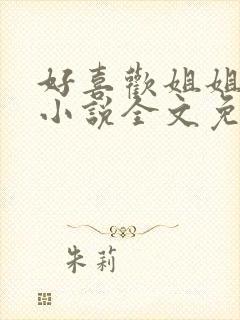 好喜歡姐姐
小說全文免
朱莉